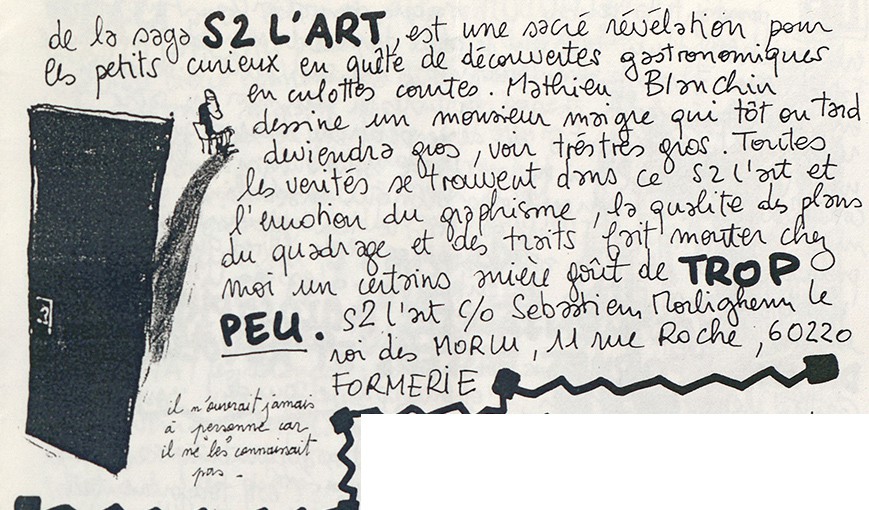 de la saga S2 L'ART, est une sacré révélation pour
les petits curieux en quête de découvertes gastronomiques
en culottes courtes. Mathieu Blanchin
dessine un monsieur maigre qui tôt ou tard
deviendra gros, voir tréstrès gros. Toutes
les verités se trouvent dans ce S2 l'art et
l'émotion du graphisme, la qualité des plans
du quadrage et des traits fait monter chez
moi un certains arrière goût de TROP
PEU. S2 l'art c/o Sebastien Morlighem le
roi des MORLU, 11 rue Roche, 60220
FORMERIE
il n'ouvrait jamais
à personne car
il ne "les" connaissait
pas.
3